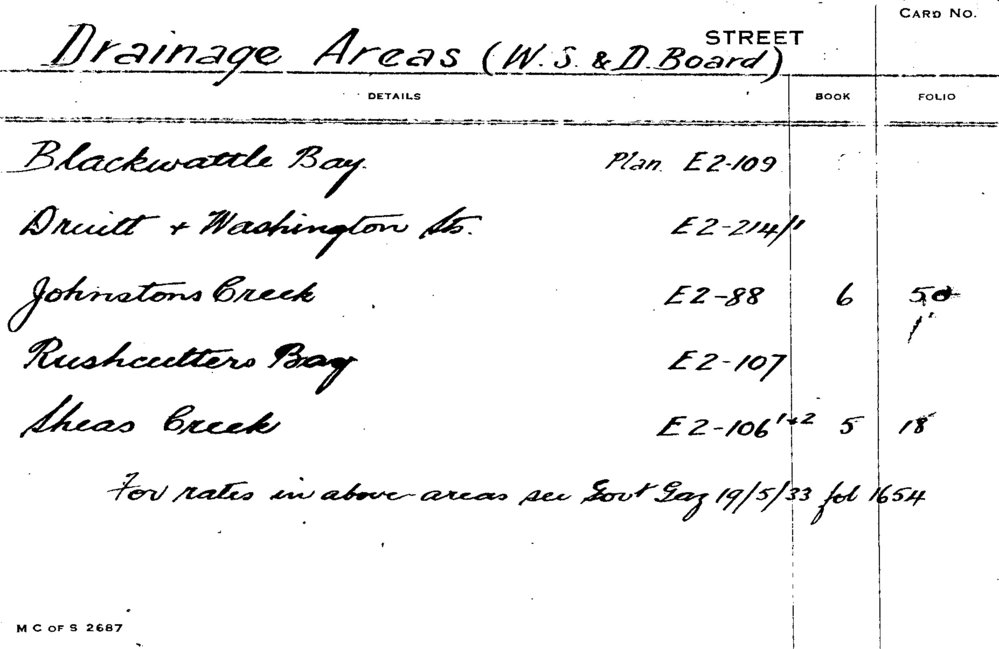 CARD NO.
STREET
Drainage Areas (W. S. & D. Board)
DETAILS BOOK FOLIO
Blackwattle Bay. Plan E2-109
Druitt + Washington Sts. E2-214/1
Johnstons Creek E2-88 6 50
Rushcutters Bay E2-107
Sheas Creek E2-106 1+2 5 18
For rates in above areas see Govt Gaz 19/5/33 fol 1654
M C OF S 2687